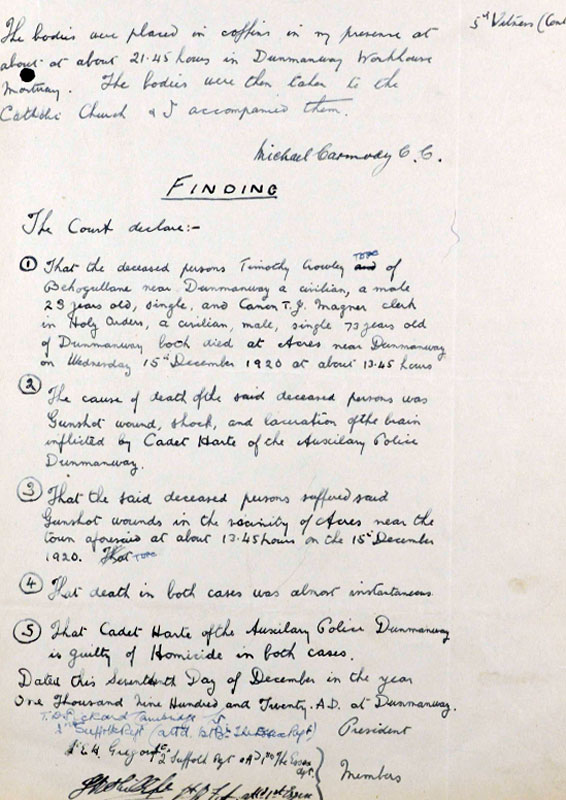 5th Witness (Cont
The bodies were placed in coffins in my presence at
about at about 21.45 hours in Dunmanway Workhouse
Mortuary. The bodies were then taken to the
Catholic Church & I accompanied them.
Michael Carmody C.C.
FINDING
The Court declare:-
1 That the deceased persons Timothy Crowley and of
Behogullane near Dunmanway a civilian, a male
23 years old, single, and Canon T.J. Magner clerk
in Holy Orders, a civilian, male, single 73 years old
of Dunmanway both died at Acres near Dunmanway
on Wednesday 15th December 1920 at about 13.45 hours
2 The cause of death of the said deceased persons was
Gunshot wound, shock, and laceration of the brain
inflicted by Cadet Harte of the Auxilary Police
Dunmanway.
3 That the said deceased persons suffered said
Gunshot wounds in the vicinity of Acres near the
town aforesaid at about 13.45 hours on the 15th December
1920. That
4 That death in both cases was almost instantaneous
5 That Cadet Harte of the Auxilary Police Dunmanway
is guilty of Homicide in both cases.
Dated this Seventeenth Day of December in the year
One Thousand Nine Hundred and Twenty. A.D. at Dunmanway.
Suffolk Regt (attd. The Essex Regt) President
2 Suffolk Regt The Essex
Regt.
Members